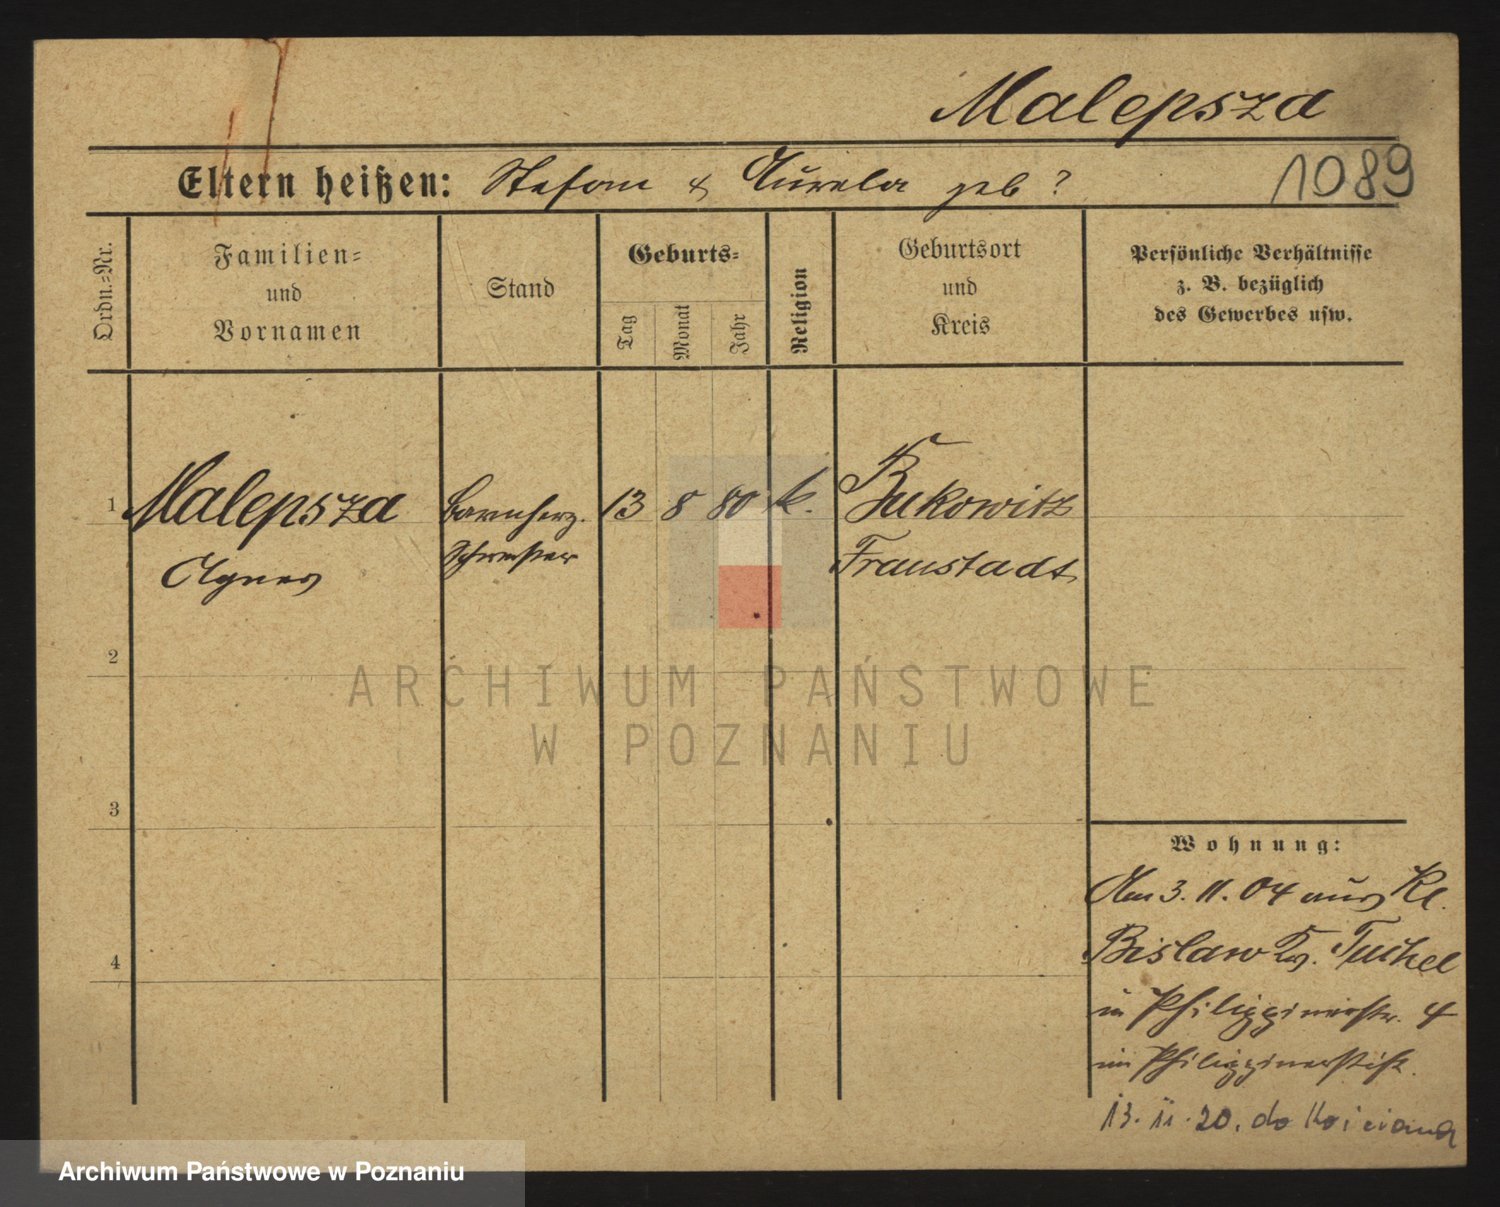 Malepsza
1089
Eltern heißen: Stefan & Aurela geb ?
Ordn.-Nr.
Familien-
und
Vornamen
Stand
Geburts-
Tag
Monat
Jahr
Religion
Geburtsort
und
Kreis
Persönliche Verhältnisse
z. B. bezüglich
des Gewerbes usw.
1 Malepsza barmherz. 13 8 80 k. Bukowitz
Agnes Schwester Fraustadt
2
ARCHIWUM PAŃSTWOWE
W POZNANIU
3
Wohnung:
Am 3. 11. 04 aus Kl.
Bislaw Kr. Tuchel
in Philippinerstr. 4
im Philippinerstift.
4
13. 11. 20. do Kościana
Archiwum Państwowe w Poznaniu